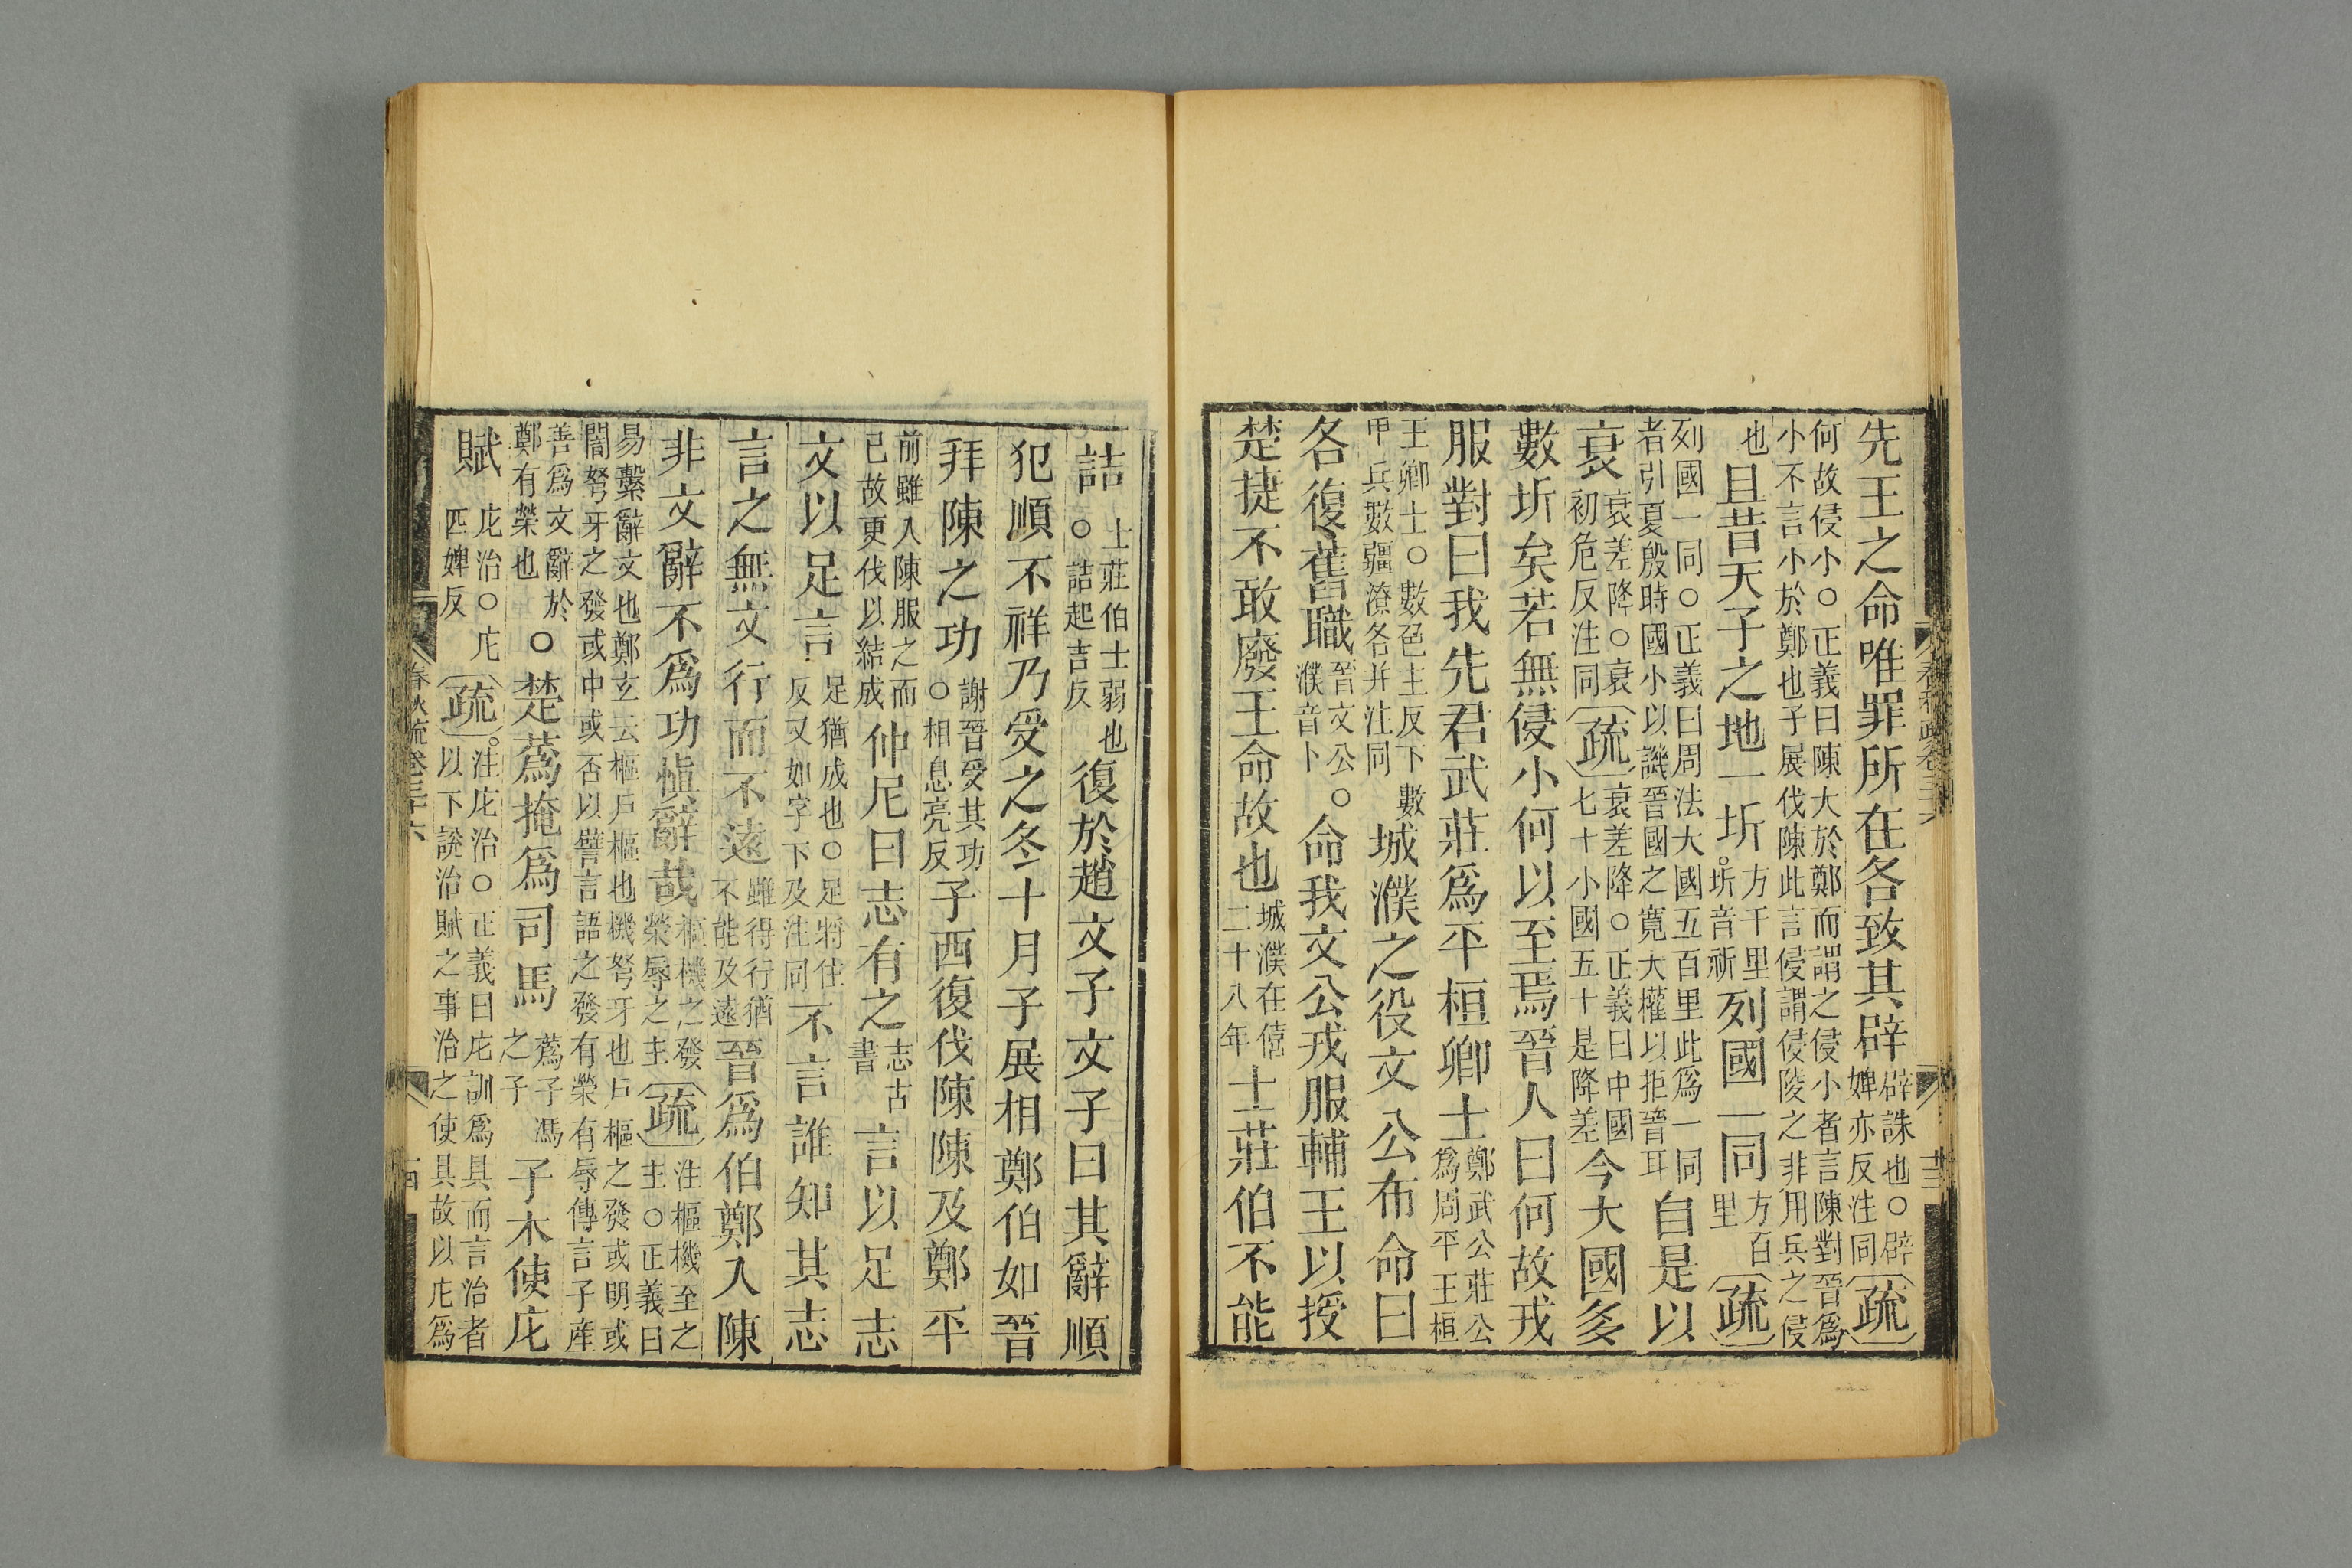 先王之命唯罪所在各致其辟辟誅也○辟婢亦反注同疏
何故侵小○正義曰陳大於鄭而謂之侵小者言陳對晉爲
小不言小於鄭也子展伐陳此言侵謂侵陵之非用兵之侵
也且昔天子之地一圻方千里圻音祈列國一同方百里疏
列國一同○正義曰周法大國五百里此爲一同
者引夏殷時國小以譏晉國之寛大權以拒晉耳自是以
衰衰差降○衰初危反注同疏衰差降○正義曰中國七十小國五十是降差今大國多
數圻矣若無侵小何以至焉晉人曰何故戎
服對曰我先君武莊爲平桓卿士鄭武公莊公爲周平王桓
王卿士○數色主反下數甲兵數疆潦各并注同城濮之役文公布命曰
各復舊職晉文公○濮音卜命我文公戎服輔王以授
楚捷不敢廢王命故也城濮在僖二十八年士莊伯不能
春秋疏卷三十六
十三
詰士莊伯士弱也○詰起吉反復於趙文子文子曰其辭順
犯順不祥乃受之冬十月子展相鄭伯如晉
拜陳之功謝晉受其功○相息亮反子西復伐陳陳及鄭平
前雖入陳服之而已故更伐以結成仲尼曰志有之志古書言以足志
文以足言足猶成也○足將住反又如字下及注同不言誰知其志
言之無文行而不遠雖得行猶不能及遠晉爲伯鄭入陳
非文辭不爲功愼辭哉樞機之發榮辱之主疏注樞機至之主○正義曰
易繫辭文也鄭玄云樞戶樞也機弩牙也戶樞之發或明或
闇弩牙之發或中或否以譬言語之發有榮有辱傳言子産
善爲文辭於鄭有榮也○楚蒍掩爲司馬蒍子馮之子子木使庀
賦庀治○庀匹婢反疏注庀治○正義曰庀訓爲具而言治者以下說治賦之事治之使具故以庀爲
春秋疏卷三十六
十四